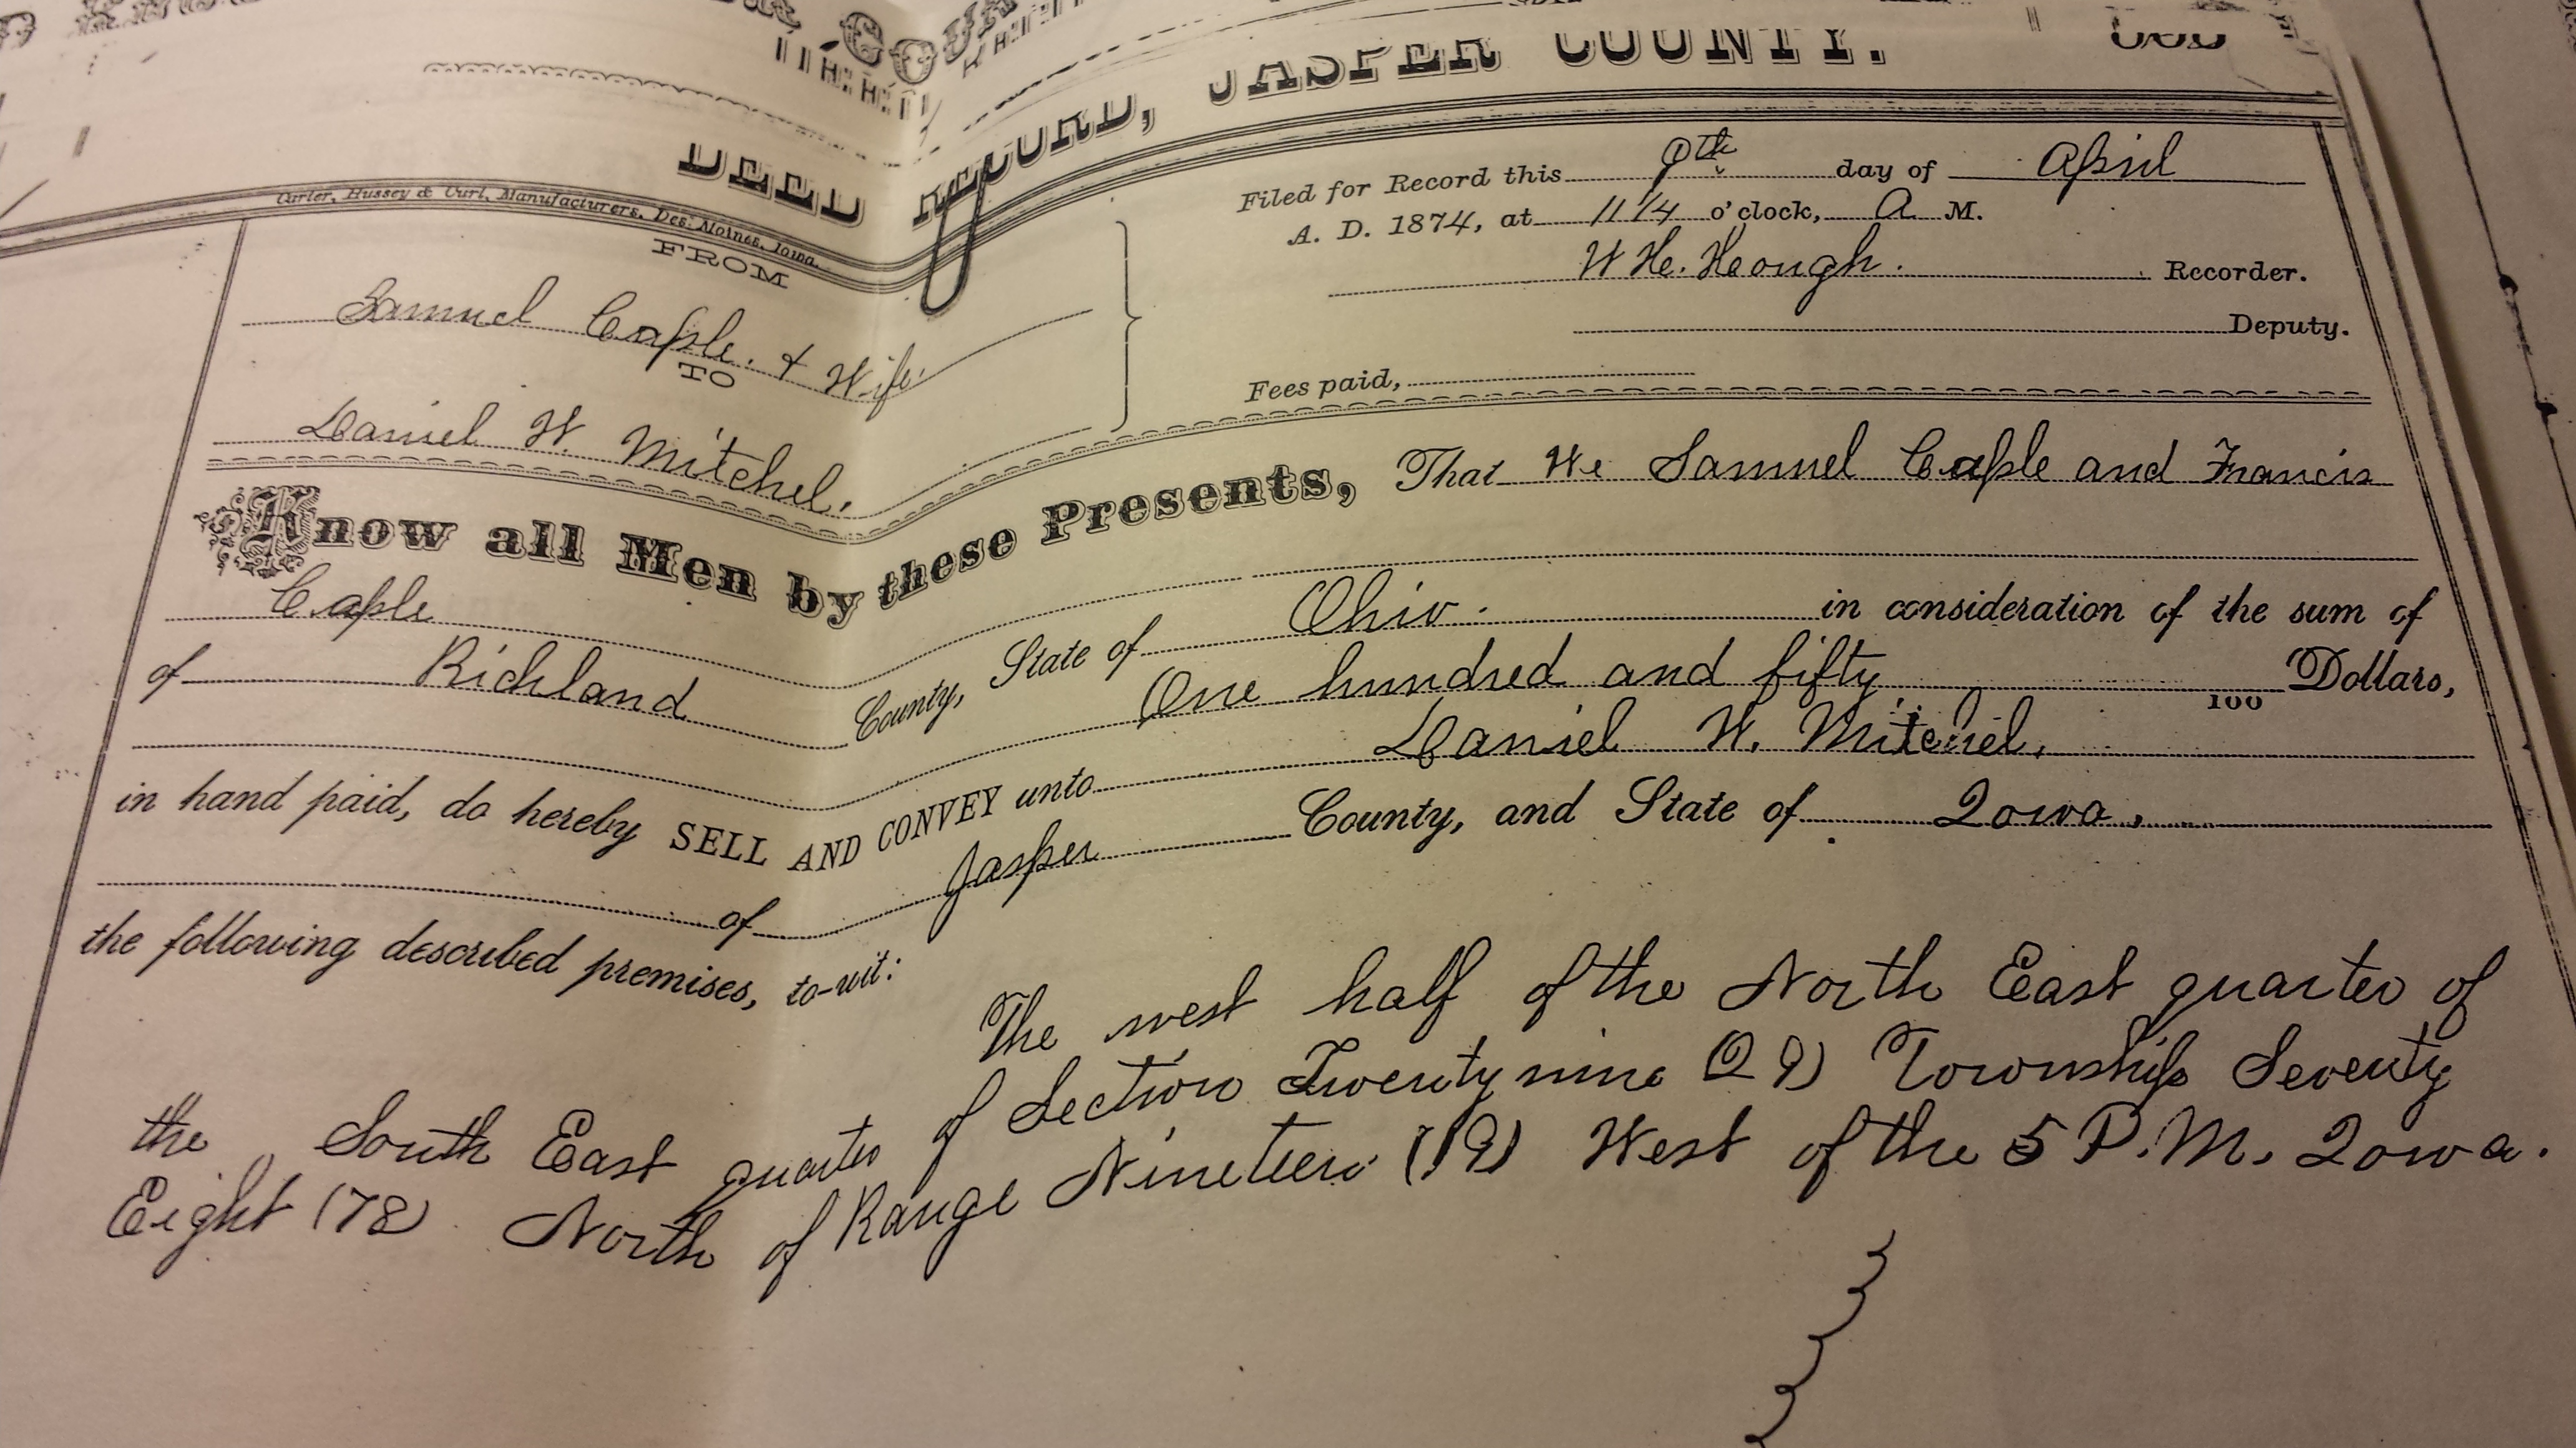 DEED RECORD, JASPER COUNTY.
Carter, Hussey & Curl, Manufacturers, Des Moines, Iowa.
FROM
Samuel Caple. & Wife.
TO
Daniel W. Mitchel.
Filed for Record this 9th day of April
A. D. 1874, at 11 1/4 o'clock, A M.
W H. Keough. Recorder.
Deputy.
Fees paid,
Know all Men by these Presents, That We Samuel Caple and Francis
Caple
of Richland County, State of Ohio. in consideration of the sum of
One hundred and fifty 100 Dollars,
in hand paid, do hereby SELL AND CONVEY unto Daniel W. Mitchel.
of Jasper County, and State of Iowa,
the following described premises, to-wit:
The west half of the North East quarter of
the South East quarter of Section Twenty nine (29) Township Seventy
Eight (78) North of Range Nineteen (19) West of the 5 P.M. Iowa.